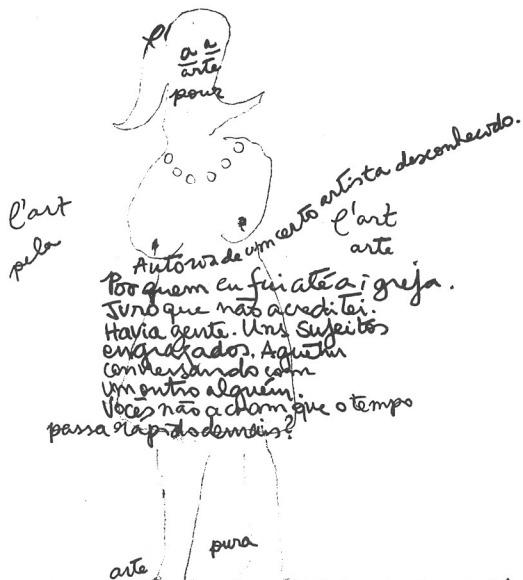 l'
a a
arte
pour
l'art
pela
Autoria de um certo artista desconhecido.
l'art
arte
Por quem eu fui até a igreja.
Juro que não acreditei.
Havia gente. Uns sujeitos
engraçados. Alguém
conversando com
um outro alguém.
Vocês não acham que o tempo
passa rápido demais?
pura
arte